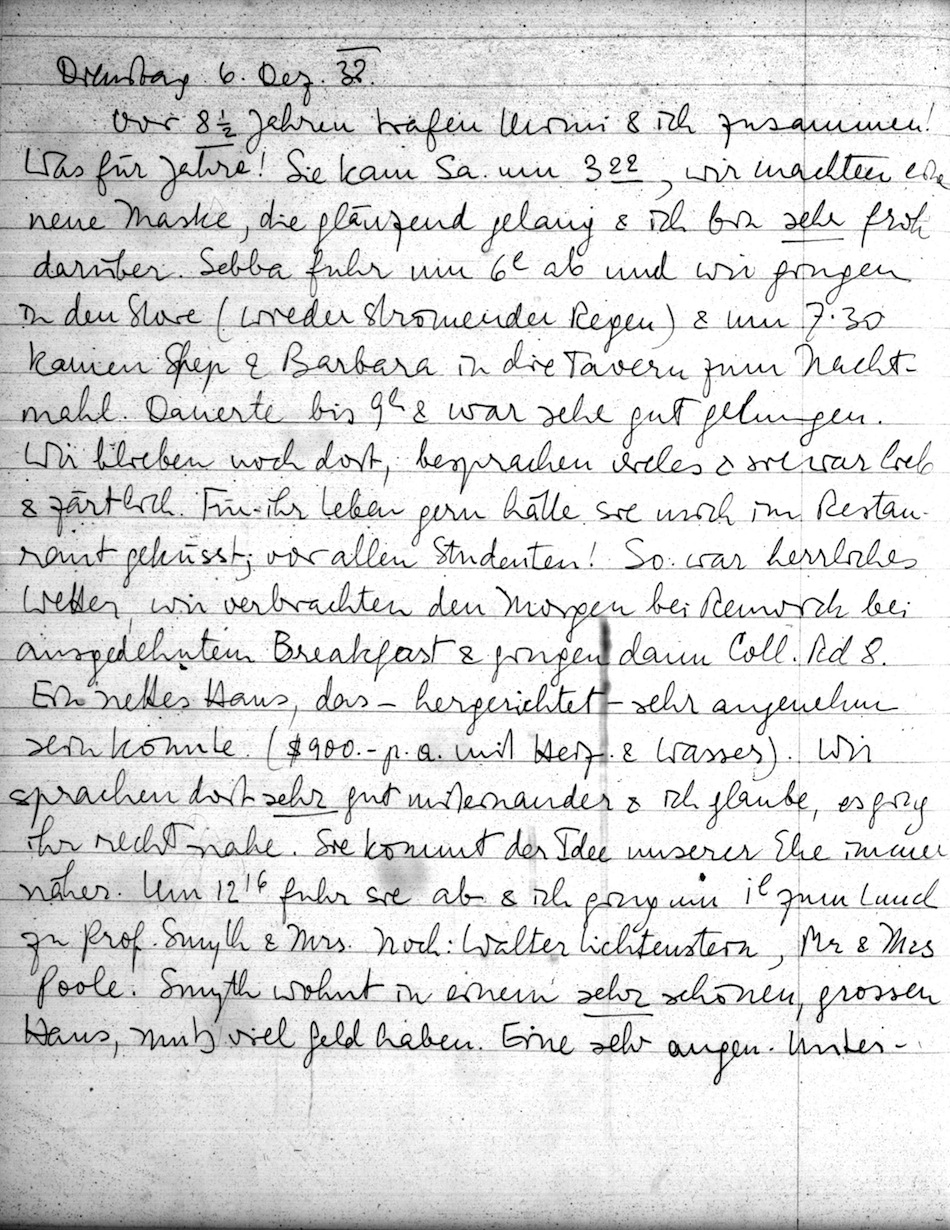 Dienstag 6. Dez. 38.
Vor 8 ½ Jahren trafen Mimi & ich zusammen!
Was für Jahre! Sie kam Sa. um 3 22, wir machten eine
neue Maske, die glänzend gelang & ich bin sehr froh
darüber. Sebba fuhr um 6h ab und wir gingen
in den Store (wieder strömender Regen) & um 7.30
kamen Shep & Barbara in die Tavern zum Nacht-
mahl. Dauerte bis 9h & war sehr gut gelungen.
Wir blieben noch dort, besprachen vieles & sie war lieb
& zärtlich. Für ihr Leben gern hätte sie mich im Restau-
rant geküsst, vor allen Studenten! So. war herrliches
Wetter, wir verbrachten den Morgen bei Renwick bei
ausgedehntem Breakfast & gingen dann Coll. Rd 8.
Ein nettes Haus, das – hergerichtet – sehr angenehm
sein könnte. ($900.- p.a. mit Heiz. & Wasser). Wir
sprachen dort sehr gut miteinander & ich glaube, es ging
ihr recht nahe. Sie kommt der Idee unserer Ehe immer
näher. Um 12 16 fuhr sie ab & ich ging um 1h zum Lunch
zu Prof. Smyth & Mrs. Noch: Walter Lichtenstein, Mr & Mrs
Poole. Smyth wohnt in einem sehr schönen, grossen
Haus, muß viel Geld haben. Eine sehr angen. Unter-